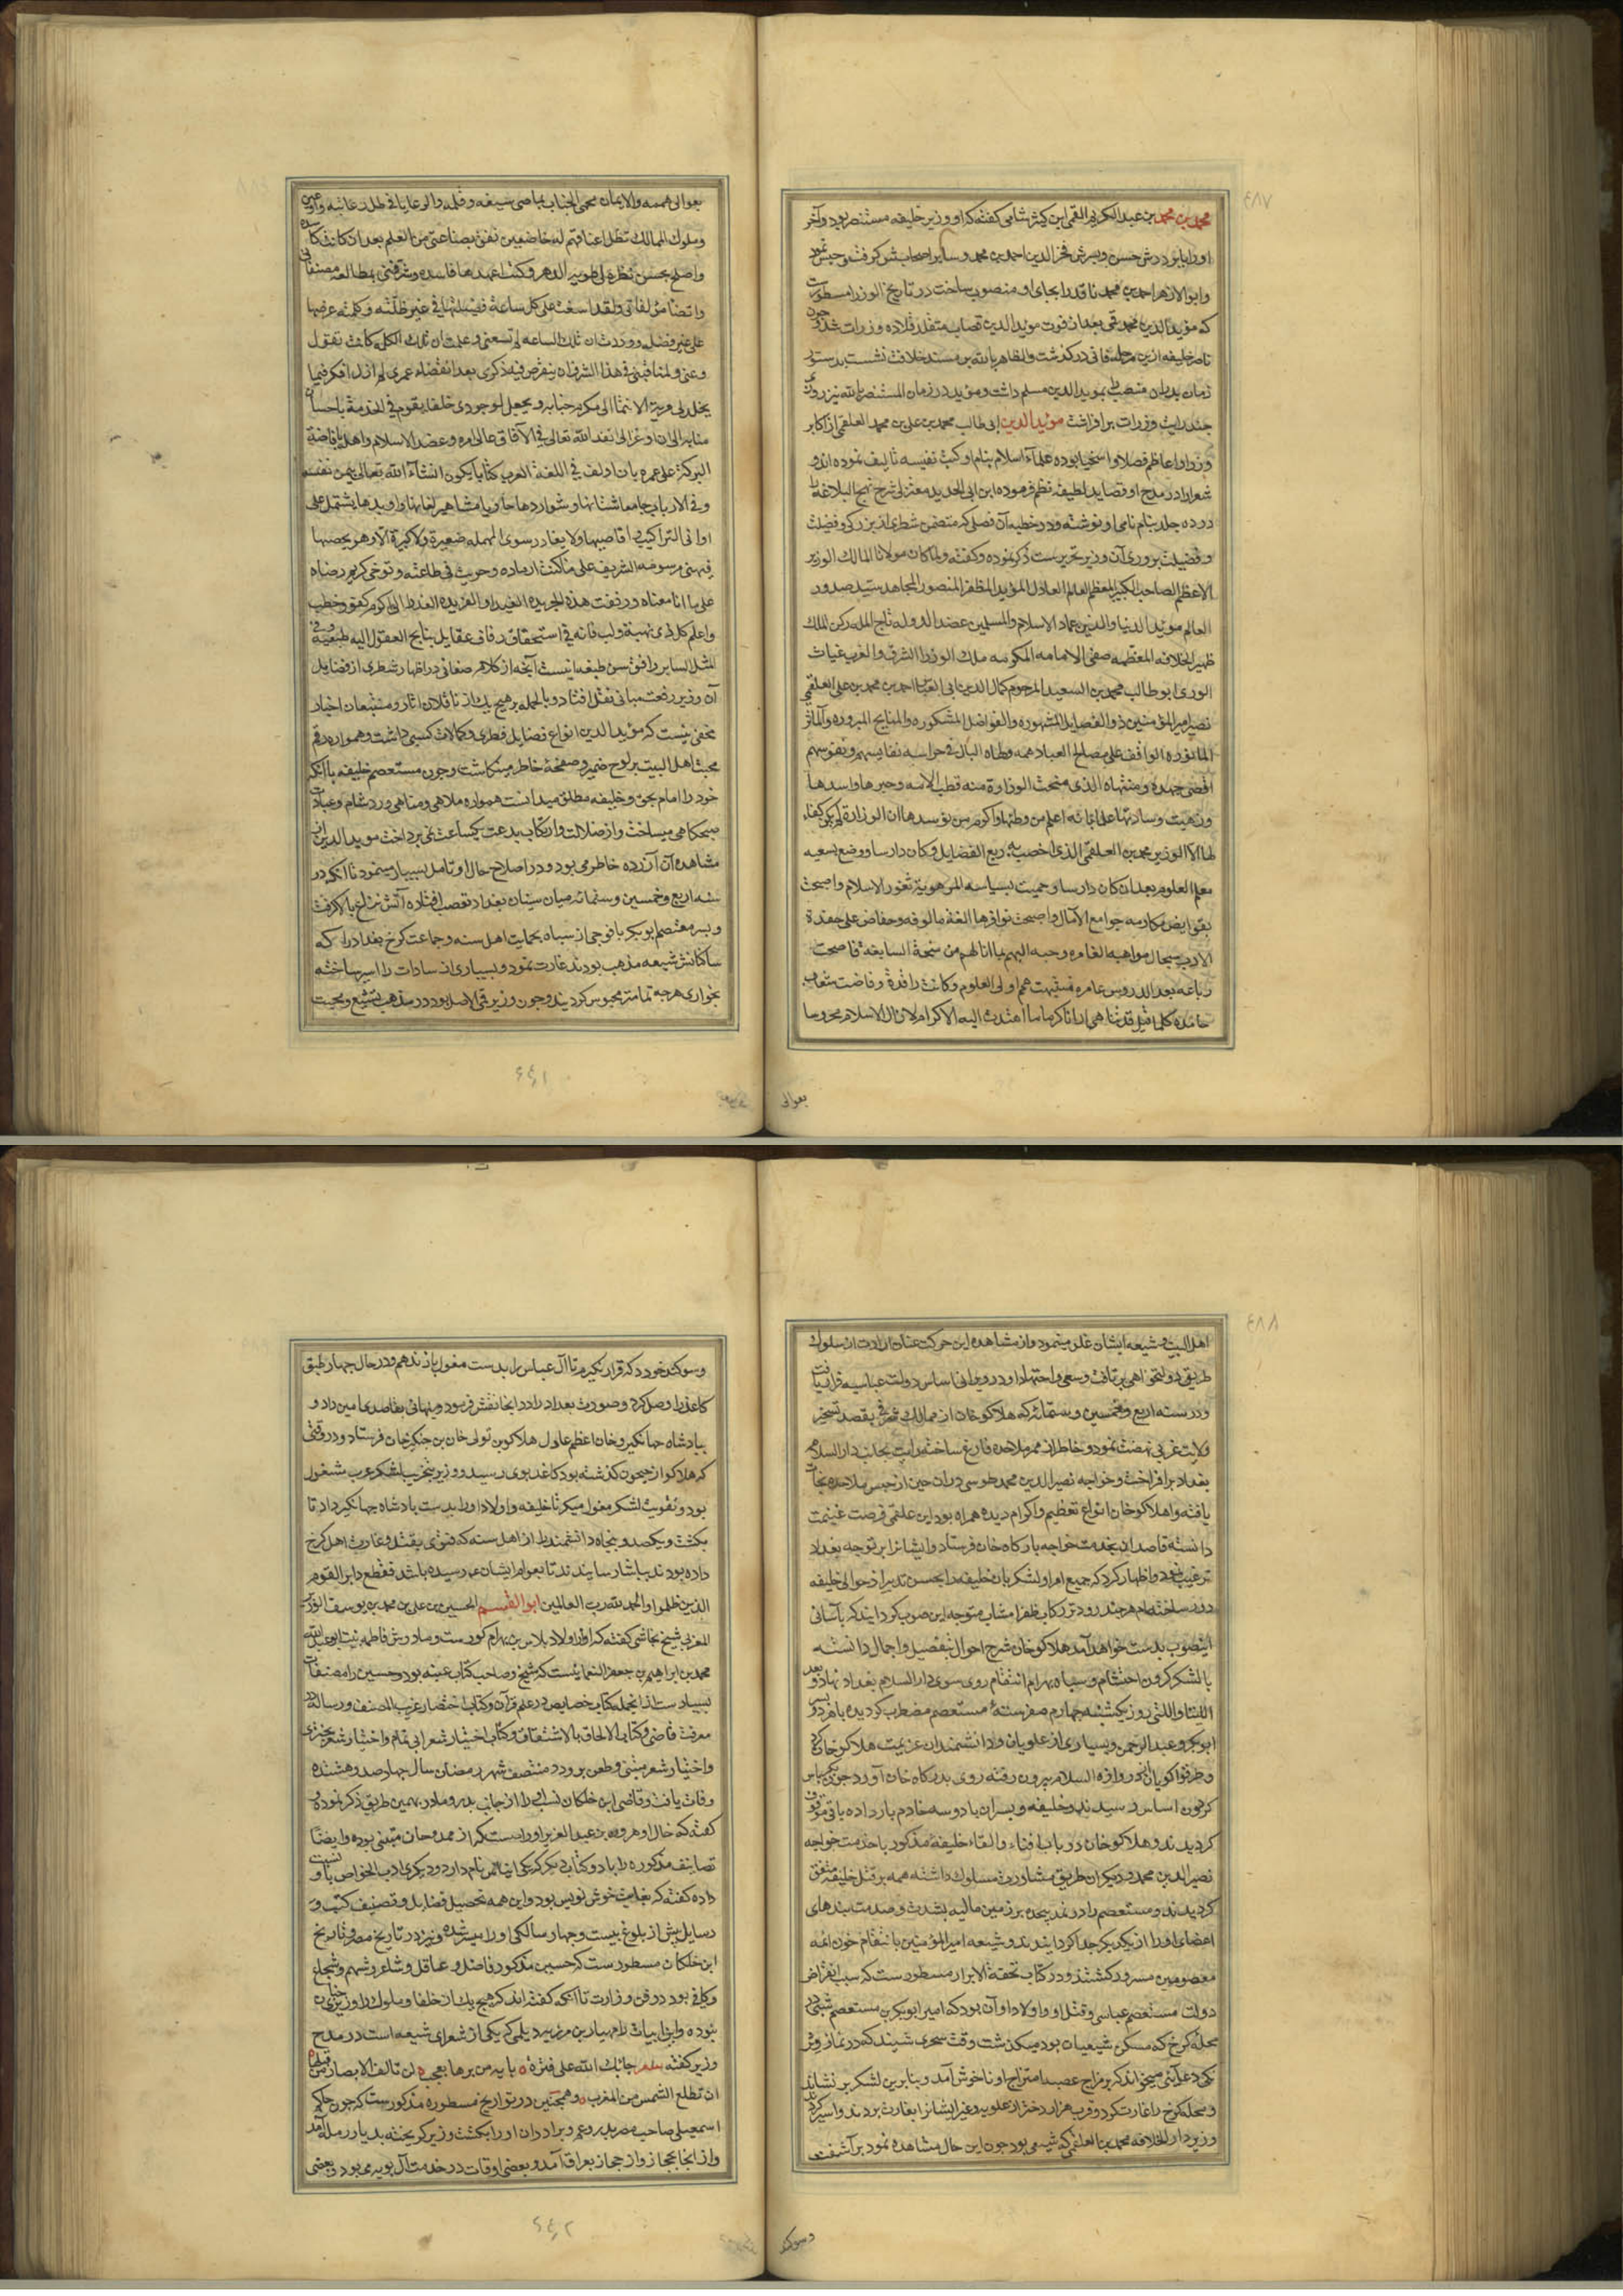 ٤٨٧
محمد بن محمد بن عبد الکریم القمی ابن کثیر شامی کفته که او وزیر خلیفه مستنصر بود و آخر
او را با برادرش حسن و پسرش فخر الدین احمد بن محمد و سایر اصحابش کرفت و حبس نمود
و ابو الازهر احمد بن محمد ناقد را بجای او منصوب ساخت در تاریخ الوزرا مسطورست
که مؤید الدین محمد قمی بعد از فوت موید الدین قصاب متقلد قلاده وزارت شد و چون
ناصر خلیفه ازین فانی درکذشت و الظاهر بالله بر مسند خلافت نشست بدستور
زمان پدر آن منصب را بموید الدین مسلم داشت و مؤید در زمان المستنصر بالله نیز روزی
چند رایت وزارت برافراشت موئید الدین ابی طالب محمد بن علی بن محمد العلقمی از اکابر
وزرا و اعاظم فضلا و اسخیا بوده علماء اسلام بنام او کتب نفیسه تالیف نموده اند و
شعرا در مدح او قصاید لطیفه نظم فرموده ابن ابی الحدید معتزلی شرح نهج البلاغه را
در ده جلد بنام نامی او نوشته و در خطبه آن فصلی که متضمن شطری از بزرکی و فضیلت
و فضیلت پروری آن وزیر تحریرست ذکر نموده و کفته و لما کان مولانا المالک الوزیر
الاعظم الصاحب الکبیر المعظم العالم العادل المؤید المظفر المنصور المجاهد سید صدور
العالم موئید الدنیا و الدین عماد الاسلام و المسلمین عضد الدوله تاج المله رکن الملک
ظهیر الخلافه المعظمه صفی الامامه المکرمه ملک الوزرا الشرق و الغرب غیاث
الوری ابو طالب محمد بن السعید المرحوم کمال الدین ابی العباس احمد بن محمد بن علی العلقمی
نصیر امیر المؤمنین ذو الفضایل المشهوره و الفواضل المشکوره و المنایح المبروره و المآثر
الماثوره الواقف علی مصالح العباد همه و بطاه البال فی حراسه نفایسهم و نفوسهم
اقصی جهده و منتهاه الذی منحت الوزارة منه قطب لاسه و حبرها و اسدها
وزهیت وسادتها علی انه اعلم من وطیها و اکرم من توسدها ان الوزارة لم یکن کفاء
لها الا الوزیر محمد بن العلقمی الذی اخصب به ربع الفضایل و کان دارسا و وضع بسعیه
معلم العلوم بعد ان کان دارسا و حمیت بسیاسه المرهوبة ثغور الاسلام و اصبحت
بفوایض مکارمه جوامع الآمال و اصبحت نوافرها الفه مالوفه و حفاض علی حفدة
الادب سجال مواهبه الغامره و حبه الیهم بما انالهم من منحة السابغة فاصبحت
رباعه بعد الدروس عامره فتنبهت همم اولی العلوم و کانت راقدة و فاضت شعاب
خامده کلما قیل قد تناهی ارانا کرما ما اهتدت الیه الاکرام لا زال الاسلام محروسا
بعوالی
بعوالی هممه و الایمان محمی الجناب بماضی سیفه و قلمه و الرعایا فی ظل رعایته
و ملوک الممالک تظل اعناقهم له خاضعین نفق بضاعتی من العلم بعد ان کانت کاسدة
و اصلح بحسن نظره لی طویر الدهر و کنت اعهدها فاسده و شرفنی بمطالعه مصنفاتی
و ایضا مؤلفاتی و لقد اسفت علی کل ساعة قضیتها فی غیر ظلّه و کلمته عرضها
علی غیر فضله و وددت ان تلک الساعه لم تسعنی و علمت ان تلک الکله کانت تقول
و عنی و لمنافستی فی هذا الشرف ان ینقرض فیه ذکری بعد انقضاء عمری لم ازل افکر فیما
یخلد لی مزیة الانتما الی مکرم جنابه و یجعل لوجودی خلفا یقوم فی الخدمة باحسان
منابه الی ان اوعز الی انفذ الله تعالی فی الآفاق عالی امره و عضد الاسلام و اهله بافاضة
البرکة علی عمره بان اولف فی اللغة العرب کتابا یکون انشاء الله تعالی بیمن نفسه
وفی الارباب جامعا شتاتها و شواردها حاویا مشاهیر لغاتها و اوبدها یشتمل علی
ادانی التراکیب و اقاصیها و لا یغادر سوی المهمله صغیرة و لا کبیرة الا و هو یحصیها
فبنیت مرسومه الشریف علی ما کنت ارصاده و حویت فی طاعته و توخی کریم رضاه
علی ما انا معناه و رفعت هذه الخریده الغیداء و الفریده العذرا الی اکرم کفو و خطب
و اعلم کل ذی نهیة و لب فانه فی استحقاق زفاف عقایل نتایج العقول الیه طبقه و فی
المثل السایر وافق شن طبقه اینست آنچه از کلام صغانی در اظهار شطری از فضایل
آن وزیر رفعت مبانی نقل افتاد و بالجمله بر هیچ یک از ناقلان اثار و متتبعان اخبار
مخفی نیست که مؤید الدین انواع فضایل فطری و کمالات کسبی داشت و همواره رقم
محبت اهل البیت بر لوح ضمیر و صفحه خاطر مینکاشت و چون مستعصم خلیفه با آنکه
خود را امام بحق و خلیفه مطلق میدانست همواره ملاهی و مناهی ورد شام و عبادت
صبحکاهی میساخت و از ضلالت و ارتکاب بدعت یکساعت نمی پرداخت موید الدین از
مشاهده آن آزرده خاطر می بود و در اصلاح حال او تامل بسیار مینمود تا آنکه در
سنه اربع و خمسین و ستمائه میان سنیان بغداد تعصب افتاده آتش نزاع بالا کرفت
و پسر معتصم ابوبکر با فوجی از سپاه بحمایت اهل سنه و جماعت کرخ بغداد را که
ساکنانش شیعه مذهب بودند غارت نمود و بسیاری از سادات را اسیر ساخته
بخواری هرچه تمامتر محبوس کردیند و چون وزیر قمی الاصل بود و در مذهب تشیع و محبت
٤٤١
٤٨٨
اهل البیت و شیعه ایشان غلو مینمود و از مشاهده این حرکت عنان ارادت از سلوک
طریق دولتخواهی برتافت و سعی و اجتهاد او در ویرانی اساس دولت عباسیه قرار یافت
و در سنه اربع و خمسین و ستمائه که هلاکو خان از ممالک شرقی بقصد تسخیر
ولایت غربی نهضت نمود و خاطر از ممر ملاحده فارغ ساخته رایت بجانب دار السلام
بغداد برافراخت و خواجه نصیر الدین محمد طوسی در ان حین از حبس ملاحده نجات
یافته و از هلاکو خان انواع تعظیم و اکرام دیده همراه بود ابن علقمی فرصت غنیمت
دانسته قاصدان بخدمت خواجه بارکاه خان فرستاد و ایشانرا بر توجه بغداد
ترغیب نمود و اظهار کرد که جمیع امرا و لشکریان خلیفه را بحسن تدبیر از حوالی خلیفه
دور ساخته ام هرچند زودتر رکاب ظفر انتساب متوجه این صوب کردانید که بآسانی
اینصوب بدست خواهد آمد هلاکو خان شرح احوال بتفصیل و اجمال دانسته
با لشکر کردون احتشام و سپاه بهرام انتقام روی سوی دار السلام بغداد نهاد و بعد
اللیتا و اللتی روز یکشنبه چهارم صفر سنه مستعصم مضطرب کردیده با هر دو پسر
ابوبکر و عبد الرحمن و بسیاری از علویان و دانشمندان عزیمت هلاکو خان کرد
و طرقوا کویان از دروازه السلام بیرون رفته روی بدرکاه خان آورد چون بکریاس
کردون اساس رسیدند خلیفه و پسران با دو سه خادم بار داده باقی موقوف
کردیدند و هلاکو خان در باب افناء و القاء خلیفه مذکور با خدمت خواجه
نصیر الدین محمد و دیکران طریق مشاورت مسلوک داشته همه بر قتل خلیفه متفق
کردیدند و مستعصم را در نمد پیچیده بر زمین مالیه بشدت و صدمت بندهای
اعضای او را از یکدیکر جدا کردانیدند و شیعه امیر المؤمنین بانتقام خون ائمه
معصومین مسرور کشتند و در کتاب تحفة الابرار مسطورست که سبب انقراض
دولت مستعصم عباسی و قتل او و اولاد او آن بود که امیر ابوبکر بن مستعصم شبی در
محله کرخ که مسکن شیعیان بود میکذشت وقت سحری شنید که در نماز وتر
یکی دعائی میخواند که بر مزاج عصبیت امتزاج او ناخوش آمد و بنابرین لشکر بر نشاند
و محله کرخ را غارت کرد و قریب هزار دختر از علویه و غیر ایشانرا بغارت بردند و اسیر کردند
وزیر دار الخلافه محمد بن العلقمی که شیعی بود چون این حال مشاهده نمود بر آشفت
و سوکند
و سوکند خورد که قرار نکیرم تا آل عباس را بدست مغول باز ندهم و در حال چهار طبق
کاغذ را وصل کرد و صورت بغداد را در انجا نقش فرمود و پنهانی بقاصد امین داد و
ببادشاه جهانکیر و خان اعظم عادل هلاکو بن تولی خان بن جنکیز خان فرستاد و در وقتی
که هلاکو از جیحون کذشته بود کاغذ بوی رسید و وزیر بتخریب لشکر عرب مشغول
بود و تقویت لشکر مغول میکرد تا خلیفه و اولاد او را بدست بادشاه جهانکیر داد تا
بکشت و یکصد و پنجاه دانشمند را از اهل سنه که فتوی بقتل و غارت اهل کرخ
داده بودند بیاسا رسانیدند تا بعوام ایشان چه رسیده باشد فقطع دابر القوم
الذین ظلموا و الحمد لله رب العالمین ابو القسم الحسین بن علی بن محمد بن یوسف الوزیر
المغربی شیخ نجاشی کفته که او از اولاد بلاس بن بهرام کورست و مادرش فاطمه بنت ابو عبد الله
محمد بن ابراهیم بن جعفر النعمانیست که شیخ و صاحب کتاب غیبه بود و حسین را مصنفات
بسیارست از انجمله کتاب خصایص در علم قرآن و کتاب اختصار غریب المصنف و رساله در
معرفت قاضی و کتاب الالحاق بالاشتقاق و کتاب اختیار شعر ابی تمام و اختیار شعر بحتری
و اختیار شعر متنبی و طعن بر او در منتصف شهر رمضان سال چهار صد و هشده
وفات یافت و قاضی ابن خلکان نسب او را از جانب پدر و مادر بهمین طریق ذکر نموده و
کفته که خال او هرون بن عبد العزیز اوراست که از ممدوحان متنبی بوده و ایضا
تصانیف مذکوره را با دو کتاب دیکر که یکی ایناس نام دارد و دیکری ادب الخواص باو نسبت
داده کفته که بغایت خوش نویس بود و این همه تحصیل فضایل و تصنیف کتب و
رسایل پیش از بلوغ بیست و چهار سالکی او را میسر شده و نیز در تاریخ مصر و تاریخ
ابن خلکان مسطورست که حسین مذکور فاضل و عاقل و شاعر و شهم و شجاع
و کافی بود در فن وزارت تا آنکه کفته اند که هیچ یک از خلفا و ملوک را وزیر چنان
نبوده و این ابیات را مهیار بن مرزویه دیلمی که یکی از شعرای شیعه است در مدح
وزیر کفته شعر جاءبک الله علی فترة بایه من یرها یعجب لن تالف الابصار من قبلها
ان تطلع الشمس من المغرب و همچنین در تواریخ مسطوره مذکورست که چون حاکم
اسمعیلی صاحب مصر پدر و عم و برادران او را بکشت وزیر کریخته بدیار رمله آمد
و از انجا بحجاز و از حجاز بعراق آمد و بعضی اوقات در خدمت آل بویه می بود و بعضی
٤٤٢